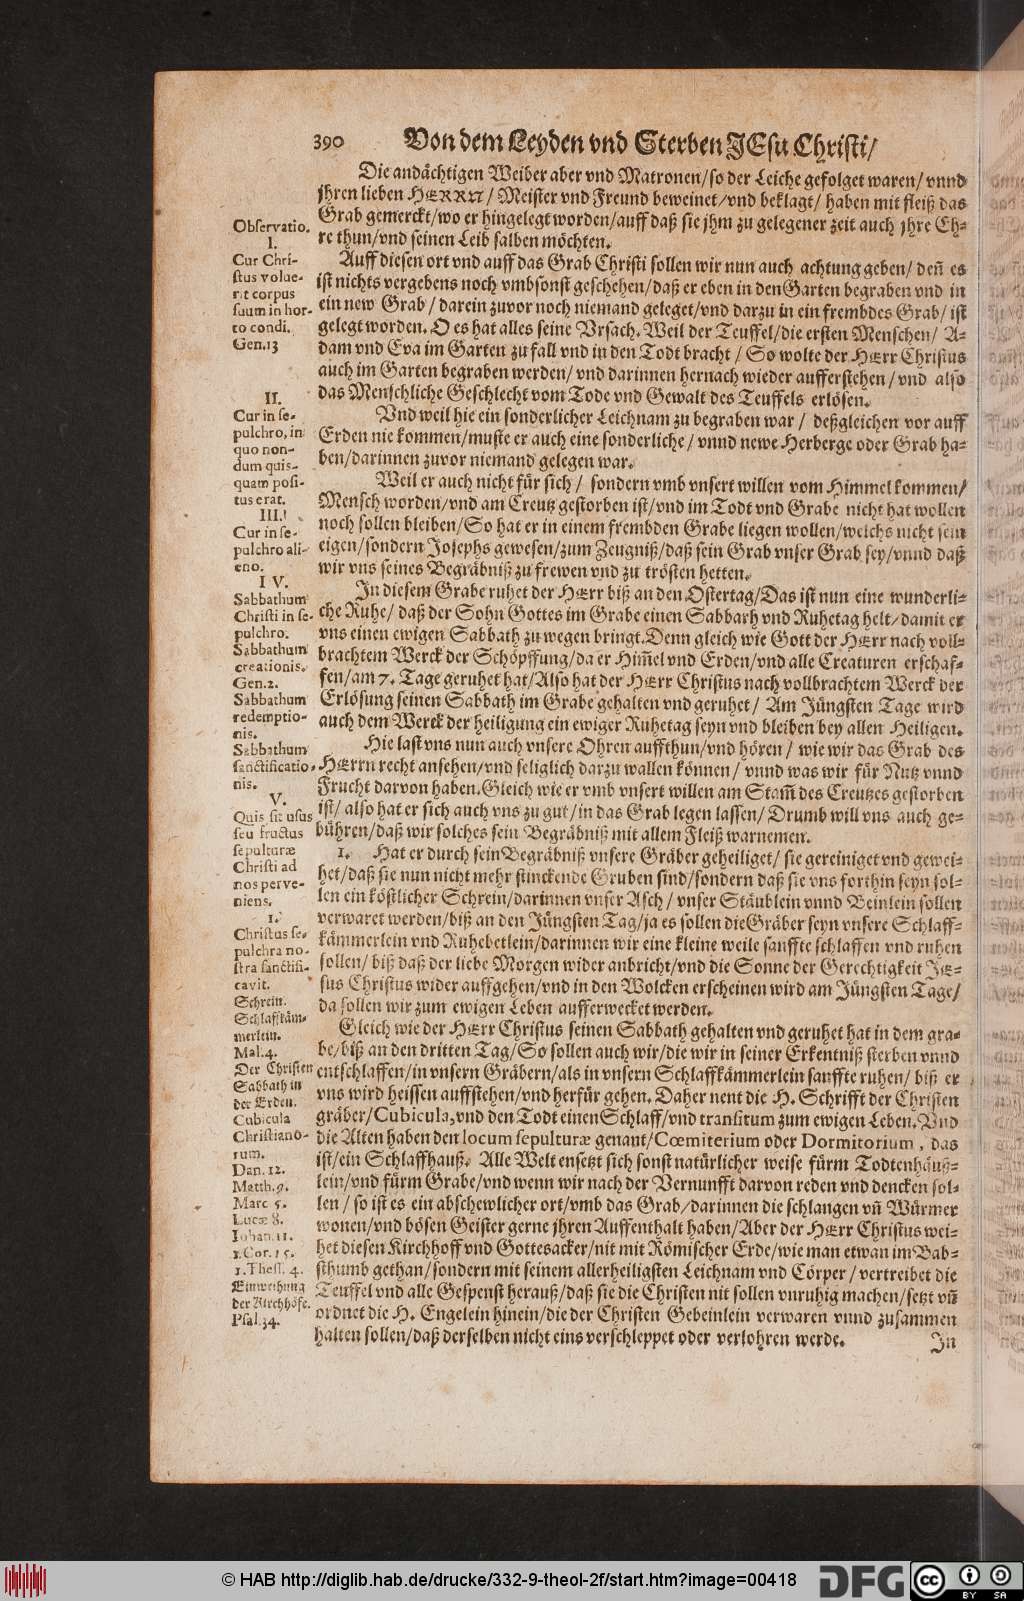 390 Von dem Leyden vnd Sterben JEsu Christi/
Die andächtigen Weiber aber vnd Matronen/so der Leiche gefolget waren/ vnnd
jhren lieben HERRN / Meister vnd Freund beweinet/vnd beklagt/ haben mit fleiß das
Grab gemerckt/wo er hingelegt worden/auff daß sie jhm zu gelegener zeit auch jhre Eh-
re thun/vnd seinen Leib salben möchten.
Auff diesen ort vnd auff das Grab Christi sollen wir nun auch achtung geben/ deñ es
ist nichts vergebens noch vmbsonst geschehen/daß er eben in den Garten begraben vnd in
ein new Grab / darein zuvor noch niemand geleget/vnd darzu in ein frembdes Grab/ ist
gelegt worden. O es hat alles seine Vrsach. Weil der Teuffel/die ersten Menschen/ A-
dam vnd Eva im Garten zu fall vnd in den Todt bracht / So wolte der HErr Christus
auch im Garten begraben werden/ vnd darinnen hernach wieder aufferstehen / vnd also
das Menschliche Geschlecht vom Tode vnd Gewalt des Teuffels erlösen.
Vnd weil hie ein sonderlicher Leichnam zu begraben war / deßgleichen vor auff
Erden nie kommen/muste er auch eine sonderliche / vnnd newe Herberge oder Grab ha-
ben/darinnen zuvor niemand gelegen war.
Weil er auch nicht für sich / sondern vmb vnsert willen vom Himmel kommen/
Mensch worden/vnd am Creutz gestorben ist/vnd im Todt vnd Grabe nicht hat wollen
noch sollen bleiben/So hat er in einem frembden Grabe liegen wollen/welchs nicht sein
eigen/sondern Josephs gewesen/zum Zeugniß/daß sein Grab vnser Grab sey/vnnd daß
wir vns seines Begräbniß zu frewen vnd zu trösten hetten.
In diesem Grabe ruhet der HErr biß an den Ostertag/Das ist nun eine wunderli-
che Ruhe/ daß der Sohn Gottes im Grabe einen Sabbath vnd Ruhetag helt/damit er
vns einen ewigen Sabbath zu wegen bringt. Denn gleich wie Gott der HErr nach voll-
brachtem Werck der Schöpffung/da er Him̃el vnd Erden/vnd alle Creaturen erschaf-
fen/am 7. Tage geruhet hat/Also hat der HErr Christus nach vollbrachtem Werck der
Erlösung seinen Sabbath im Grabe gehalten vnd geruhet / Am Jüngsten Tage wird
auch dem Werck der heiligung ein ewiger Ruhetag seyn vnd bleiben bey allen Heiligen.
Hie last vns nun auch vnsere Ohren auffthun/vnd hören / wie wir das Grab des
HErrn recht ansehen/vnd seliglich darzu wallen können / vnnd was wir für Nutz vnnd
Frucht darvon haben. Gleich wie er vmb vnsert willen am Stam̃ des Creutzes gestorben
ist/ also hat er sich auch vns zu gut/in das Grab legen lassen/ Drumb will vns auch ge-
bühren/daß wir solches sein Begräbniß mit allem Fleiß warnemen.
1. Hat er durch sein Begräbniß vnsere Gräber geheiliget/ sie gereiniget vnd gewei-
het/daß sie nun nicht mehr stinckende Gruben sind/sondern daß sie vns forthin seyn sol-
len ein köstlicher Schrein/darinnen vnser Asch / vnser Stäublein vnnd Beinlein sollen
verwaret werden/biß an den Jüngsten Tag/ja es sollen die Gräber seyn vnsere Schlaff-
kämmerlein vnd Ruhebetlein/darinnen wir eine kleine weile sanffte schlaffen vnd ruhen
sollen/ biß daß der liebe Morgen wider anbricht/vnd die Sonne der Gerechtigkeit JE-
sus Christus wider auffgehen/vnd in den Wolcken erscheinen wird am Jüngsten Tage/
da sollen wir zum ewigen Leben aufferwecket werden.
Gleich wie der HErr Christus seinen Sabbath gehalten vnd geruhet hat in dem gra-
be/biß an den dritten Tag/So sollen auch wir/die wir in seiner Erkentniß sterben vnnd
entschlaffen/in vnsern Gräbern/als in vnsern Schlaffkämmerlein sanffte ruhen/ biß er
vns wird heissen auffstehen/vnd herfür gehen. Daher nent die H. Schrifft der Christen
gräber/Cubicula,vnd den Todt einen Schlaff/vnd transitum zum ewigen Leben. Vnd
die Alten haben den locum sepulturæ genant/Cœmiterium oder Dormitorium, das
ist/ein Schlaffhauß. Alle Welt ensetzt sich sonst natürlicher weise fürm Todtenhäuß-
lein/vnd fürm Grabe/vnd wenn wir nach der Vernunfft darvon reden vnd dencken sol-
len / so ist es ein abschewlicher ort/vmb das Grab/darinnen die schlangen vñ Würmer
wonen/vnd bösen Geister gerne jhren Auffenthalt haben/Aber der HErr Christus wei-
het diesen Kirchhoff vnd Gottesacker/nit mit Römischer Erde/wie man etwan im Bab-
sthumb gethan/sondern mit seinem allerheiligsten Leichnam vnd Cörper / vertreibet die
Teuffel vnd alle Gespenst herauß/daß sie die Christen nit sollen vnruhig machen/setzt vñ
ordnet die H. Engelein hinein/die der Christen Gebeinlein verwaren vnnd zusammen
halten sollen/daß derselben nicht eins verschleppet oder verlohren werde.
In
Observatio.
I.
Cur Chri-
stus volue-
rit corpus
suum in hor-
to condi.
Gen.13
II.
Cur in se-
pulchro, in
quo non-
dum quis-
quam posi-
tus erat.
III.
Cur in se-
pulchro ali-
eno.
IV.
Sabbathum
Christi in se-
pulchro.
Sabbathum
creationis.
Gen.2.
Sabbathum
redemptio-
nis.
Sabbathum
sanctificatio-
nis.
V.
Quis sit usus
seu fructus
sepulturæ
Christi ad
nos perve-
niens.
1.
Christus se-
pulchra no-
stra sanctifi-
cavit.
Schrein.
Schlaffkäm-
merlein.
Mal.4.
Der Christen
Sabbath in
der Erden.
Cubicula
Christiano-
rum.
Dan. 12.
Matth.9.
Marc 5.
Lucæ 8.
Johan.11.
1.Cor.15.
1.Thess. 4.
Einweihung
der Kirchhöfe.
Psal.34.
© HAB http://diglib.hab.de/drucke/332-9-theol-2f/start.htm?image=00418
DFG
cc
BY SA